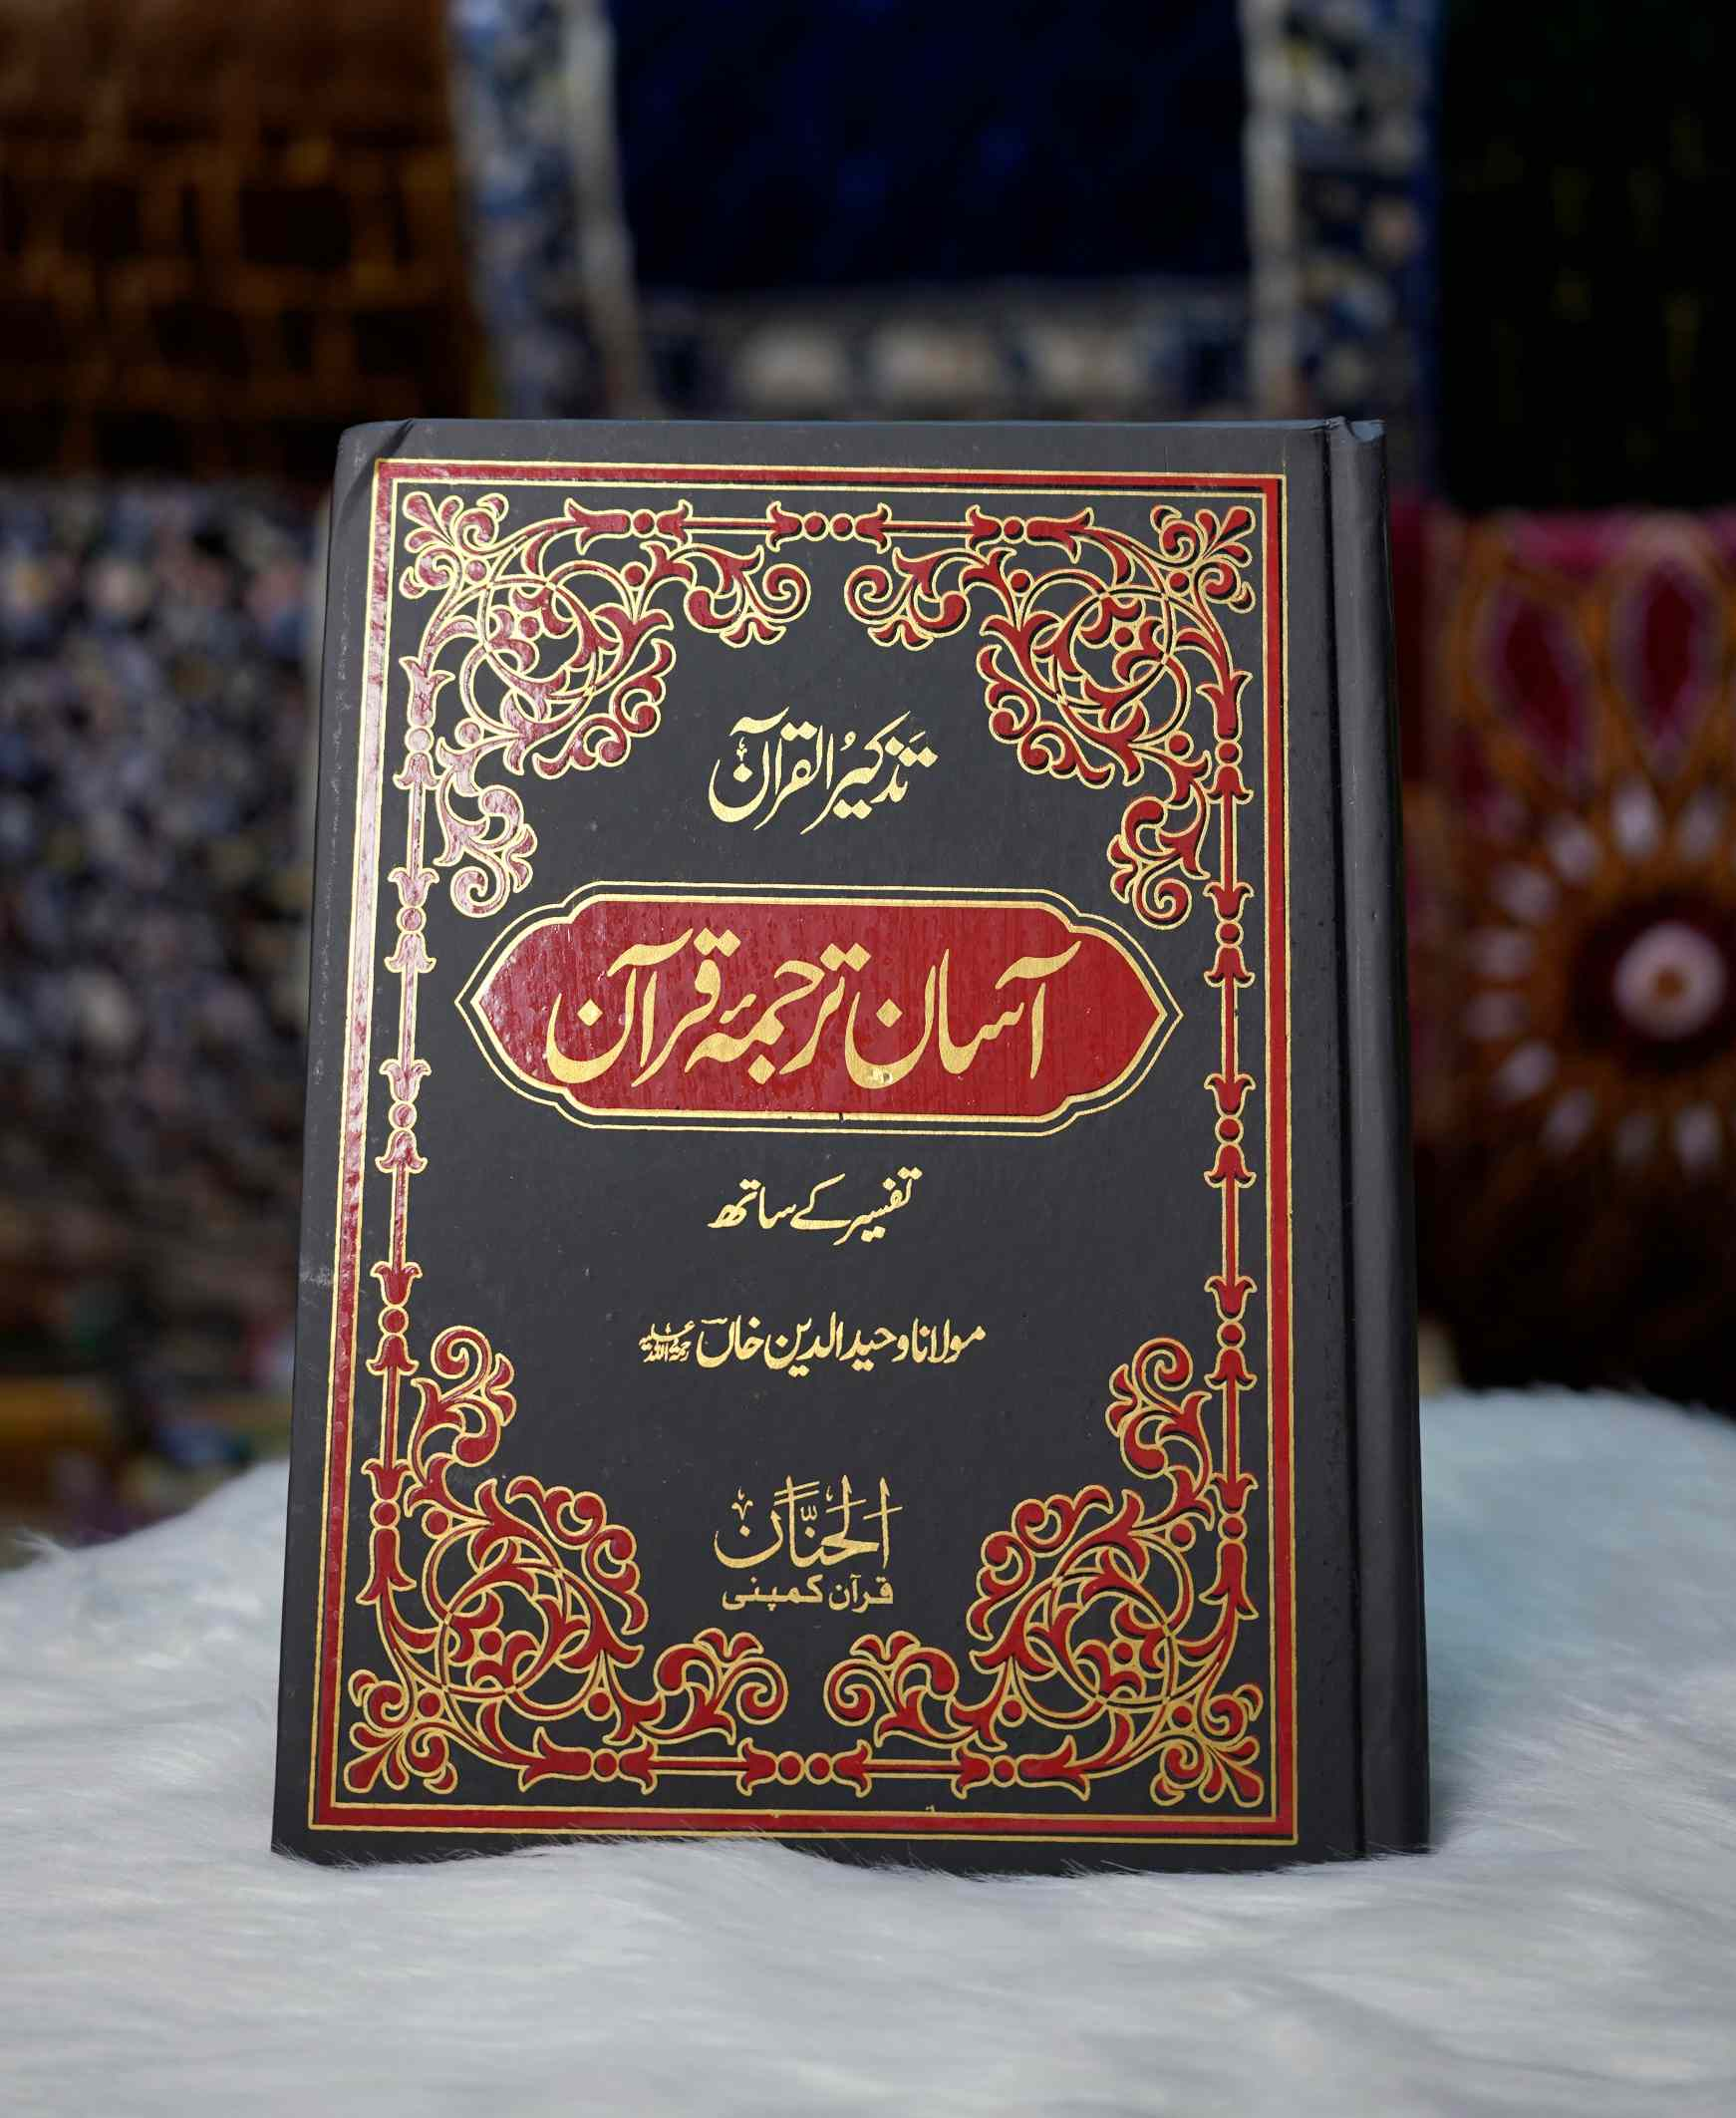 تَذکیرُ القرآن
آسان ترجمۂ قرآن
تفسیر کے ساتھ
مولانا وحید الدین خاں رحمۃ اللہ علیہ
الحَنَّان
قرآن کمپنی